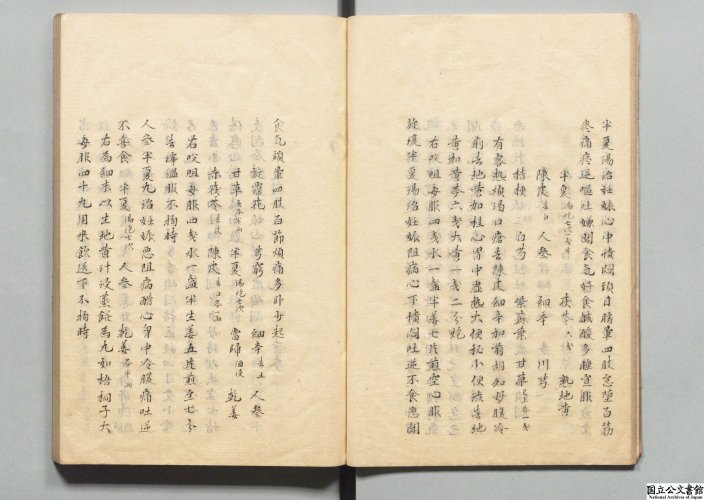 半夏湯治妊娠心中憒悶頭目眩暈四肢怠墮百節
疼痛痰逆嘔吐嫌聞食氣好食酸多睡
半夏 茯苓 熟地黄
陳皮 人參 細辛 川芎
桔梗 白芍 紫蘇葉 甘草
有客熱煩渇口瘡去陳皮細辛加前胡知母腹冷
下痢去地黄加桂心胃中虚熱大便秘小便澁去地
黄加黄芩六戔大黄一戔二分炮
右㕮咀每服四戔水一盞半姜七片煎空心服
旋覆半夏湯治妊娠阻病心下憒悶吐逆不食惡聞
食气頭暈四肢百節煩痛多卧少起
旋覆花 芎窮 細辛 人參
甘草 半夏 當歸 乾姜
赤茯苓 陳皮
右㕮咀每服四戔水一盞半生姜五片煎至七分
去滓温服不拘時
人參半夏丸治妊娠惡阻病醋心胃中冷腹痛吐逆
不喜食 半夏 人參 乾姜
右為細末以生地黄汁浸蒸餅為丸如梧桐子大
每服四十丸用米飲送下不拘時
国立公文書館
National Archives of Japan